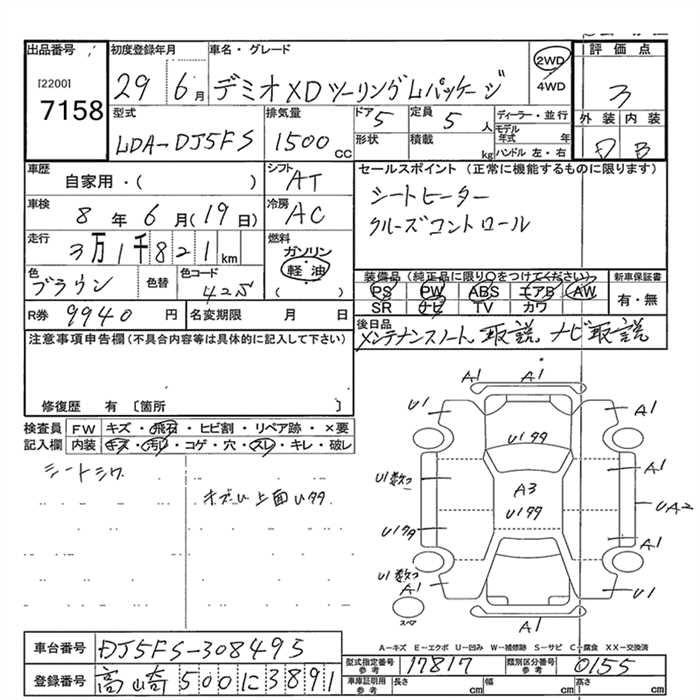 出品番号 初度登録年月 車名・グレード 評価点
[2200]
7158
29 6月 デミオXDツーリングLパッケージ 2WD 4WD 3
型式 排気量 ドア 定員 ディーラー・並行 外装 内装
LDA-DJ5FS 1500cc 5 5人 モデル年式 年
形状 積載 kg ハンドル 左・右 D B
車歴 シフト セールスポイント (正常に機能するものに限ります)
自家用・( ) AT シートヒーター
車検 冷房 クルーズコントロール
8年6月(19日) AC
走行 燃料
3万1千821km ガソリン
色 色替 色コード 軽油 装備品(純正品に限り○をつけてください) 新車保証書
ブラウン 42S ( ) PS PW ABS エアB AW 有・無
SR ナビ TV カワ
R券 9940円 名変期限 月 日 後日品
メンテナンスノート、取説、ナビ取説
注意事項申告欄(不具合内容等は具体的に記入して下さい)
修復歴 有 [箇所 ]
検査員 FW キズ・飛石・ヒビ割・リペア跡・×要
記入欄 内装 キズ・汚れ・コゲ・穴・スレ・キレ・破レ
シートシワ
上面Uタタ
A1 A1
U1 A1
Uタタ
U1数つ A1
A3
Uタタ UA2
Uタタ A1
U1数つ
A1 U1
スペア A1
A-キズ E-エクボ U-凹み W-補修跡 S-サビ C-腐食 XX-交換済
車台番号 DJ5FS-308495
型式指定番号 参考 17817 類別区分番号 参考 0155
登録番号 高崎 500 に 3891
車庫証明用 参考 長さ cm 幅 cm 高さ cm